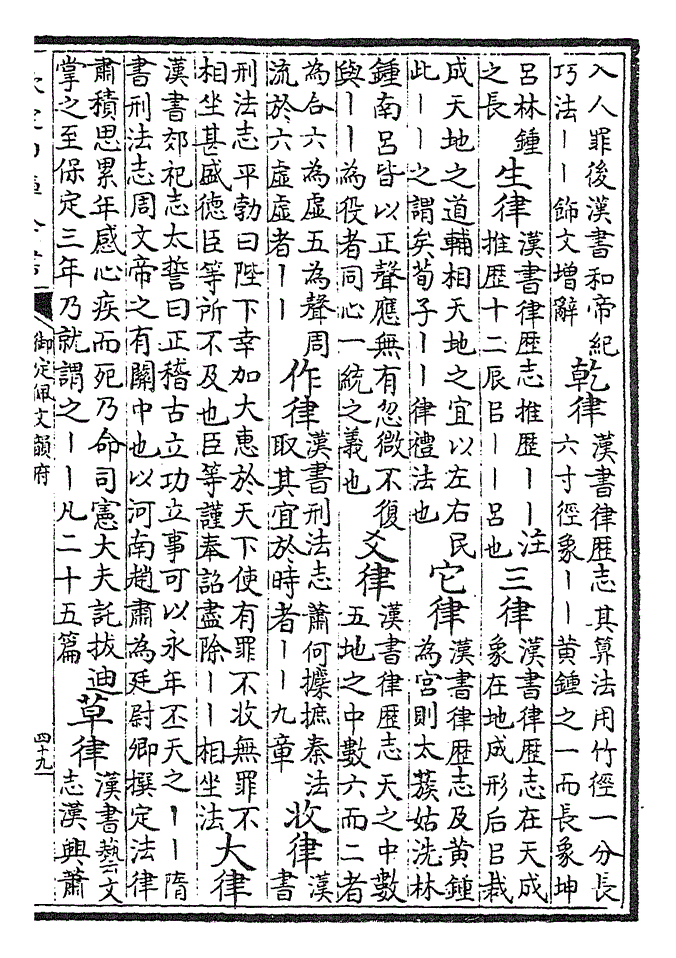 入人罪後漢書和帝紀巧法——飾文增辭 乾律 漢書律歷志其算法用竹徑一分長六寸徑象——黃鍾之一而長象坤
呂林鍾之長 生律 漢書律歷志推歷——注推歷十二辰呂——呂也 三律 漢書律歷志在天成象在地成形后呂裁
成天地之道輔相天地之宜以左右民此——之謂矣荀子——律禮法也 它律 漢書律歷志及黃鍾為宮則太蔟姑洗林
鍾南呂皆以正聲應無有忽微不復與——為役者同心一統之義也 爻律 漢書律歷志天之中數五地之中數六而二者
為合六為虛五為聲周流於六虛虛者—— 作律 漢書刑法志蕭何攈摭秦法取其宜於時者——九章 收律 漢書
刑法志平勃曰陛下幸加大惠於天下使有罪不收無罪不相坐甚盛德臣等所不及也臣等謹奉詔盡除——相坐法 大律
漢書郊祀志太誓曰正稽古立功立事可以永年丕天之——隋書刑法志周文帝之有關中也以河南趙肅為廷尉卿撰定法律
肅積思累年感心疾而死乃命司憲大夫託拔迪掌之至保定三年乃就謂之——凡二十五篇 草律 漢書藝文志漢興蕭
欽定四庫全書
御定佩文韻府
四十九